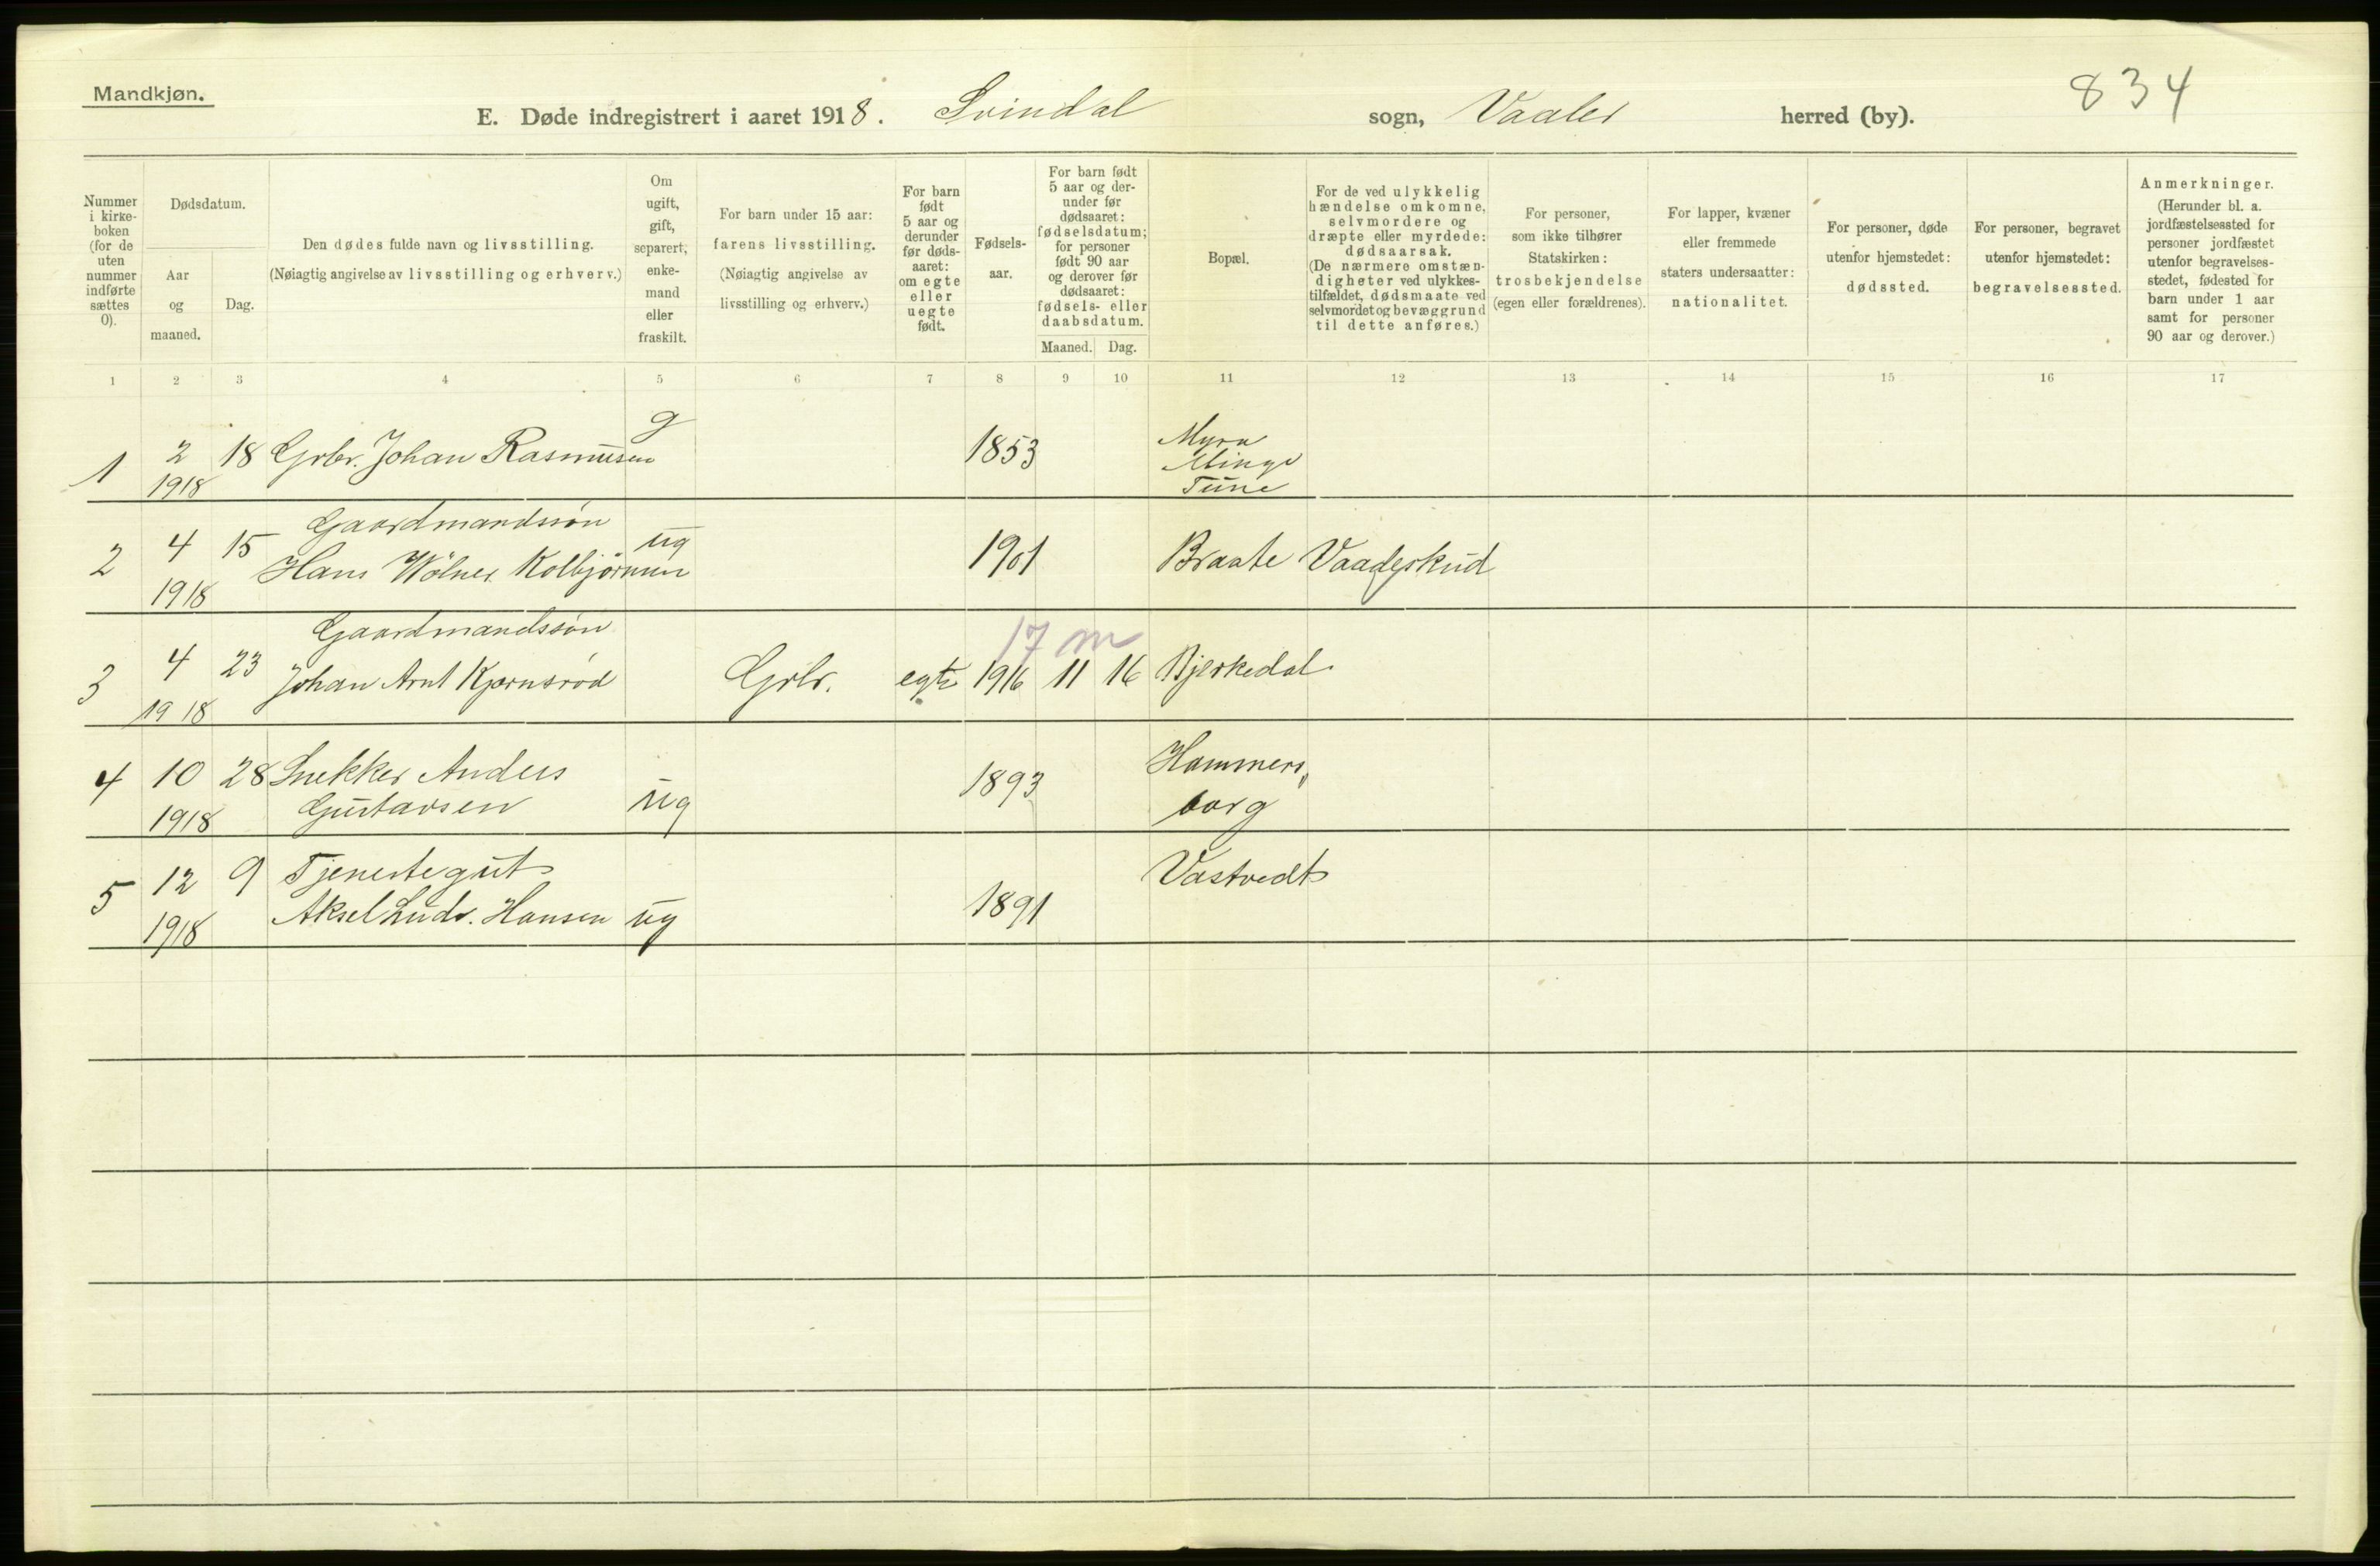 Mandkjøn.
E. Døde indregistrert i aaret 1918. Svindal sogn, Vaaler herred (by).
834
Nummer i kirke-boken (for de uten nummer indførte sættes 0).
Dødsdatum.
Aar og maaned.
Dag.
Den dødes fulde navn og livsstilling.
(Nøiagtig angivelse av livsstilling og erhverv.)
Om ugift, gift, separert, enke-mand eller fraskilt.
For barn under 15 aar:
farens livsstilling.
(Nøiagtig angivelse av
livsstilling og erhverv.)
For barn født 5 aar og derunder før døds-aaret: om egte eller uegte født.
Fødsels-aar.
For barn født 5 aar og der-under før dødsaaret: fødselsdatum; for personer født 90 aar og derover før dødsaaret: fødsels- eller daabsdatum.
Maaned. Dag.
Bopæl.
For de ved ulykkelig hændelse omkomne, selvmordere og dræpte eller myrdede: dødsaarsak.
(De nærmere omstæn-digheter ved ulykkes-tilfældet, dødsmaate ved selvmordet og bevæggrund til dette anføres.)
For personer,
som ikke tilhører
Statskirken:
trosbekjendelse
(egen eller forældrenes).
For lapper, kvæner
eller fremmede
staters undersaatter:
nationalitet.
For personer, døde
utenfor hjemstedet:
dødssted.
For personer, begravet
utenfor hjemstedet:
begravelsessted.
Anmerkninger.
(Herunder bl. a.
jordfæstelsessted for
personer jordfæstet
utenfor begravelses-
stedet, fødested for
barn under 1 aar
samt for personer
90 aar og derover.)
1 2 3 4 5 6 7 8 9 10 11 12 13 14 15 16 17
1 2 1918 18 Grbr. Johan Rasmusen g 1853 Myra Minge Tune
2 4 1918 15 Gaardmandssøn
Hans Wölner Kolbjørnsen ug 1901 Braate Vaadeskud
17 m
3 4 1918 23 Gaardmandssøn
Johan Arnt Kjærnsrød Grbr. egte 1916 11 16 Bjerkedal
4 10 1918 28 Snekker Anders
Gustavsen ug 1893 Hammers„
borg
5 12 1918 9 Tjenestegut
Aksel Ludv. Hansen ug 1891 Vastvedt